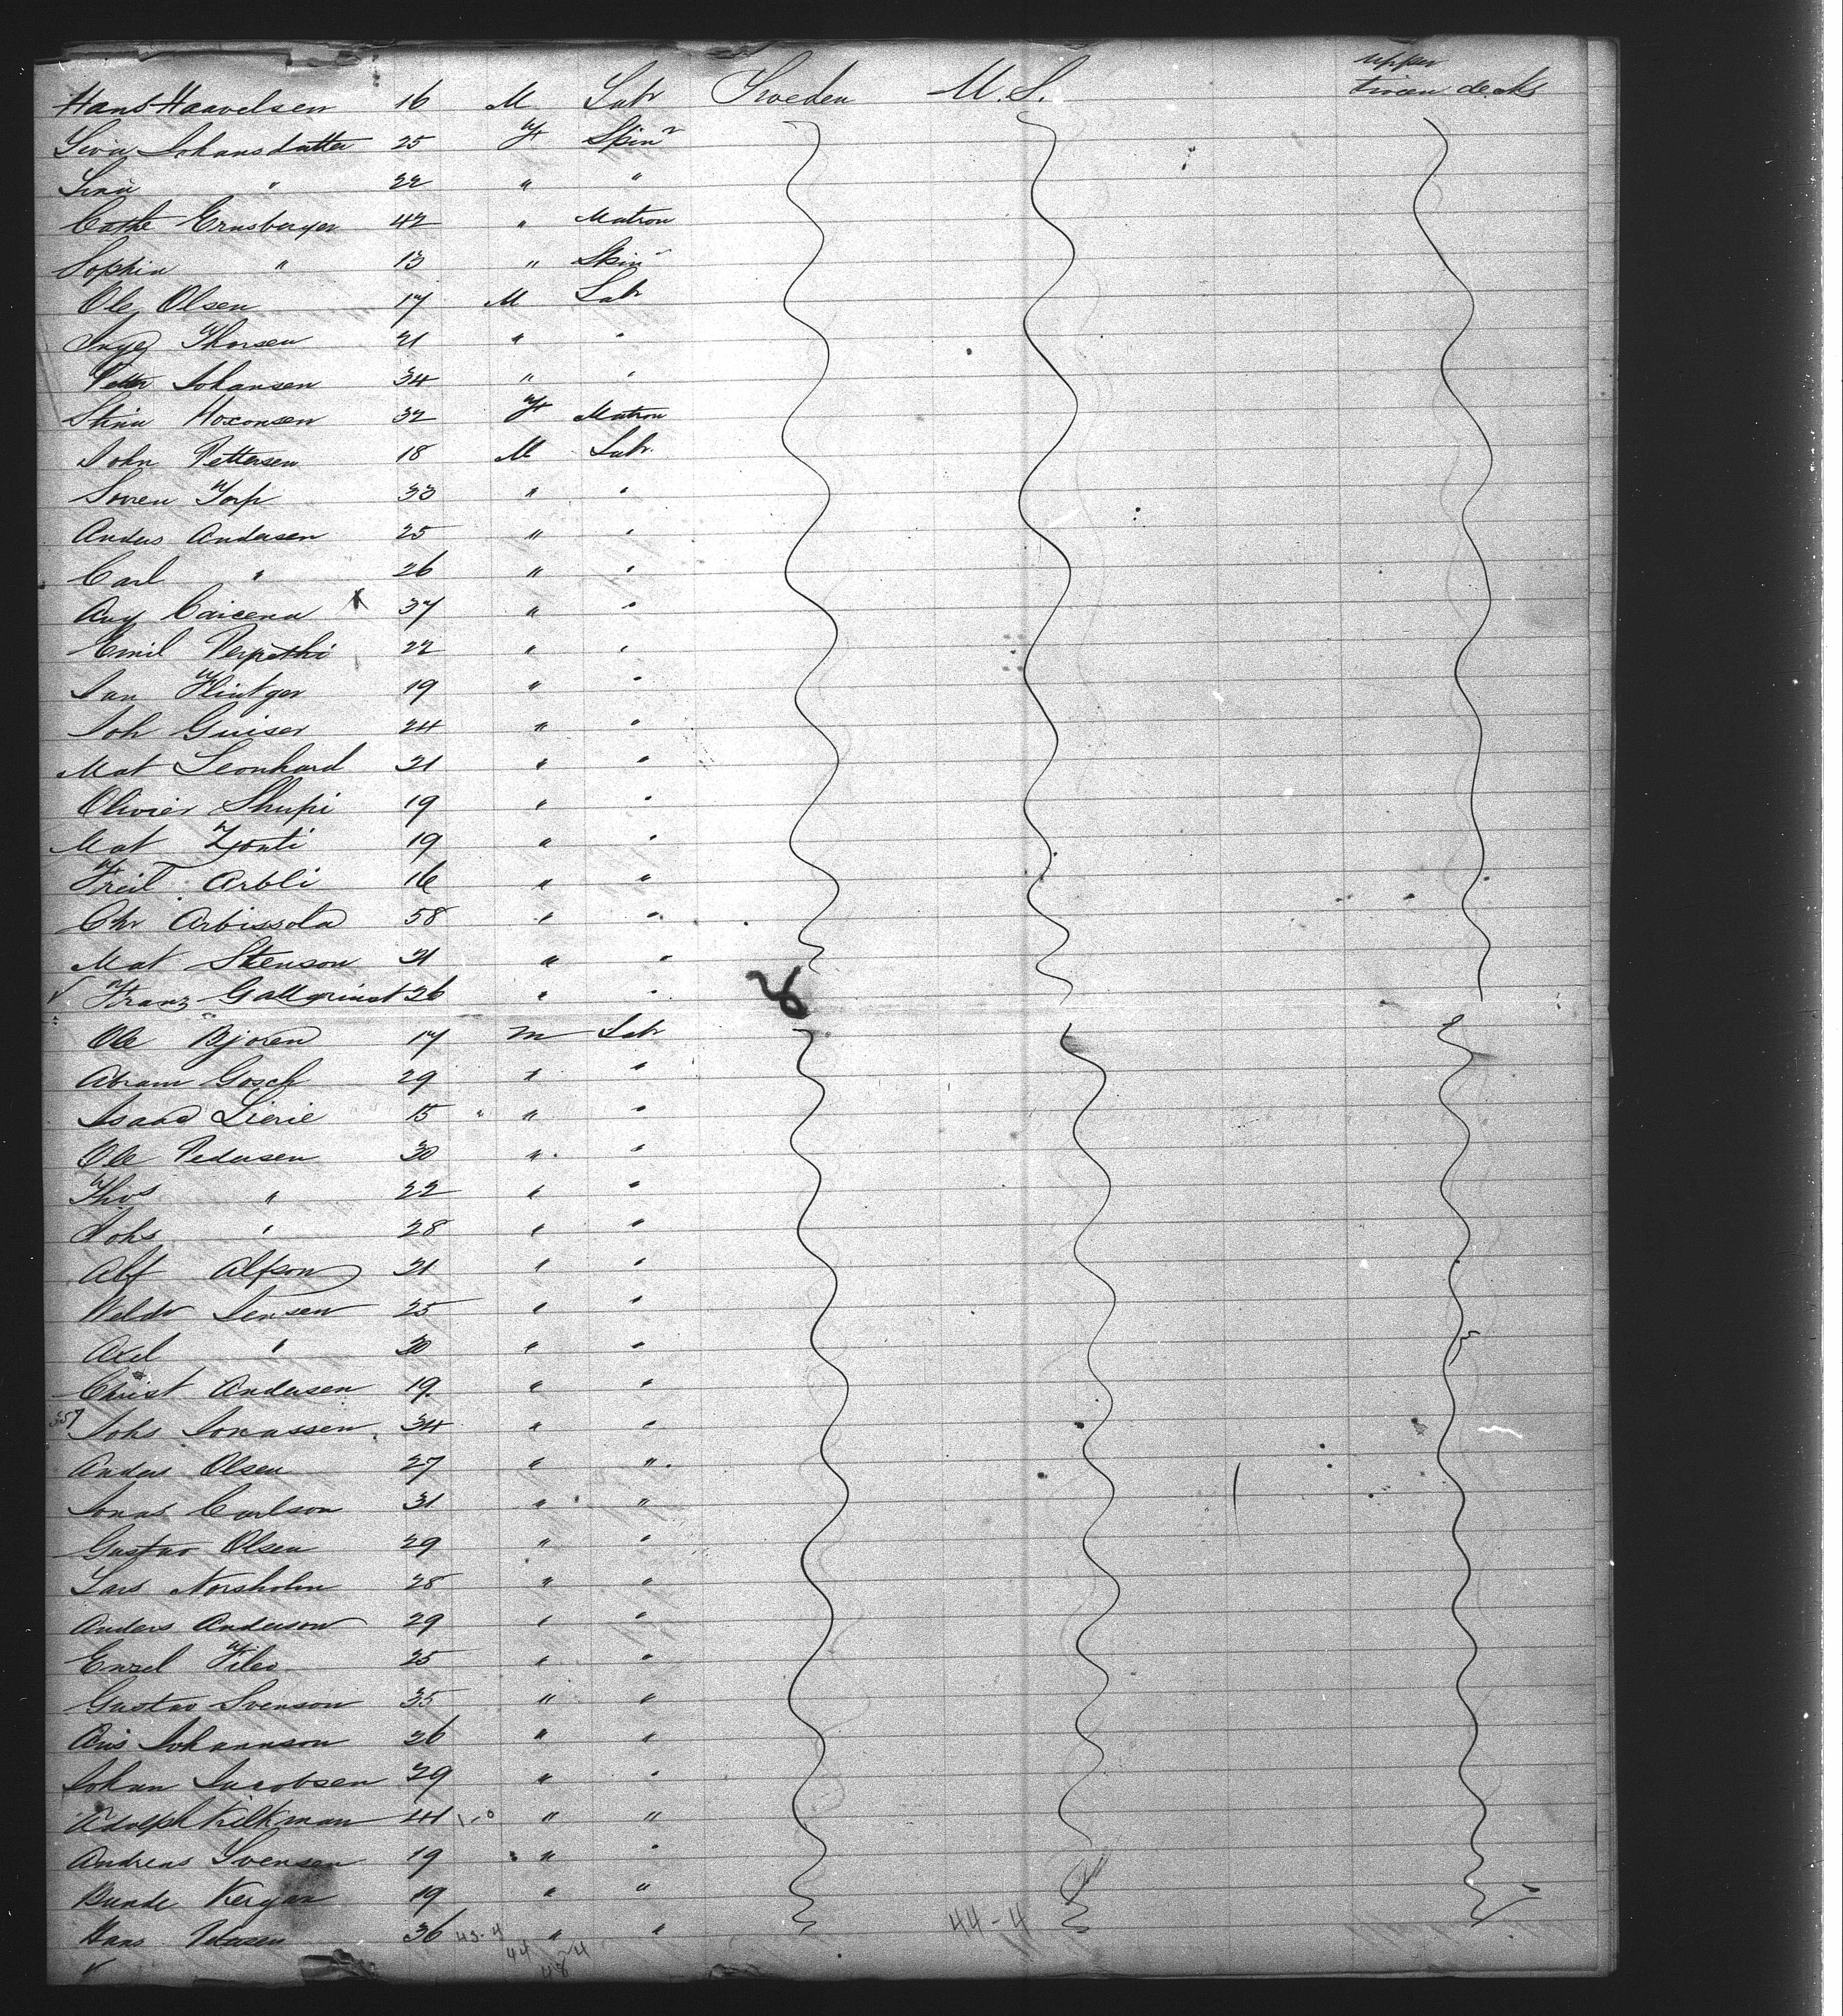 upper
Hans Haavelsen 16 M Labr Sweden U.S. tween decks
Johansdatter 25 F Spinr
Lina " 22 " "
Cathe Ernsberger 42 " Matron
Sophia " 13 " Spinr
Ole Olsen 17 M Labr
Inge Thorsen 21 " "
Petter Johansen 34 " "
Stina Hoxonsen 32 F Matron
John Pettersen 18 M Labr
Soren Torp 33 " "
Anders Andersen 25 " "
Carl " 26 " "
Aug Caicena X 37 " "
Emil 22 " "
Jan Flintger 19 " "
Joh Guiser 24 " "
Mat Leonhard 21 " "
Olivier Shupi 19 " "
Mat Zonti 19 " "
Arbli 16 " "
Chr Arbissola 58 " "
Mat Stenson 21 " "
Franz 26 " "
Ole Bjoren 17 m Labr
Abram Gosch 29 " "
Isaac Lierie 15 " "
Ole Pedersen 30 " "
Thos " 22 " "
Johs " 28 " "
Alf Alfson 21 " "
Jensen 25 " "
Axel " 30 " "
Christ Andersen 19 " "
357 Johs Jonassen 34 " "
Anders Olsen 27 " "
Jonas Carlson 31 " "
Gustav Olsen 29 " "
Lars Norsholm 28 " "
Anders Anderson 29 " "
25 " "
Gustav Svenson 35 " "
Johannson 26 " "
Johan Jacobsen 29 " "
Adolph Kilkman 41 " "
Andreas Svensen 19 " "
Bunde 19 " "
Hans Petersen 36 43-4 " " 44-4
44
48